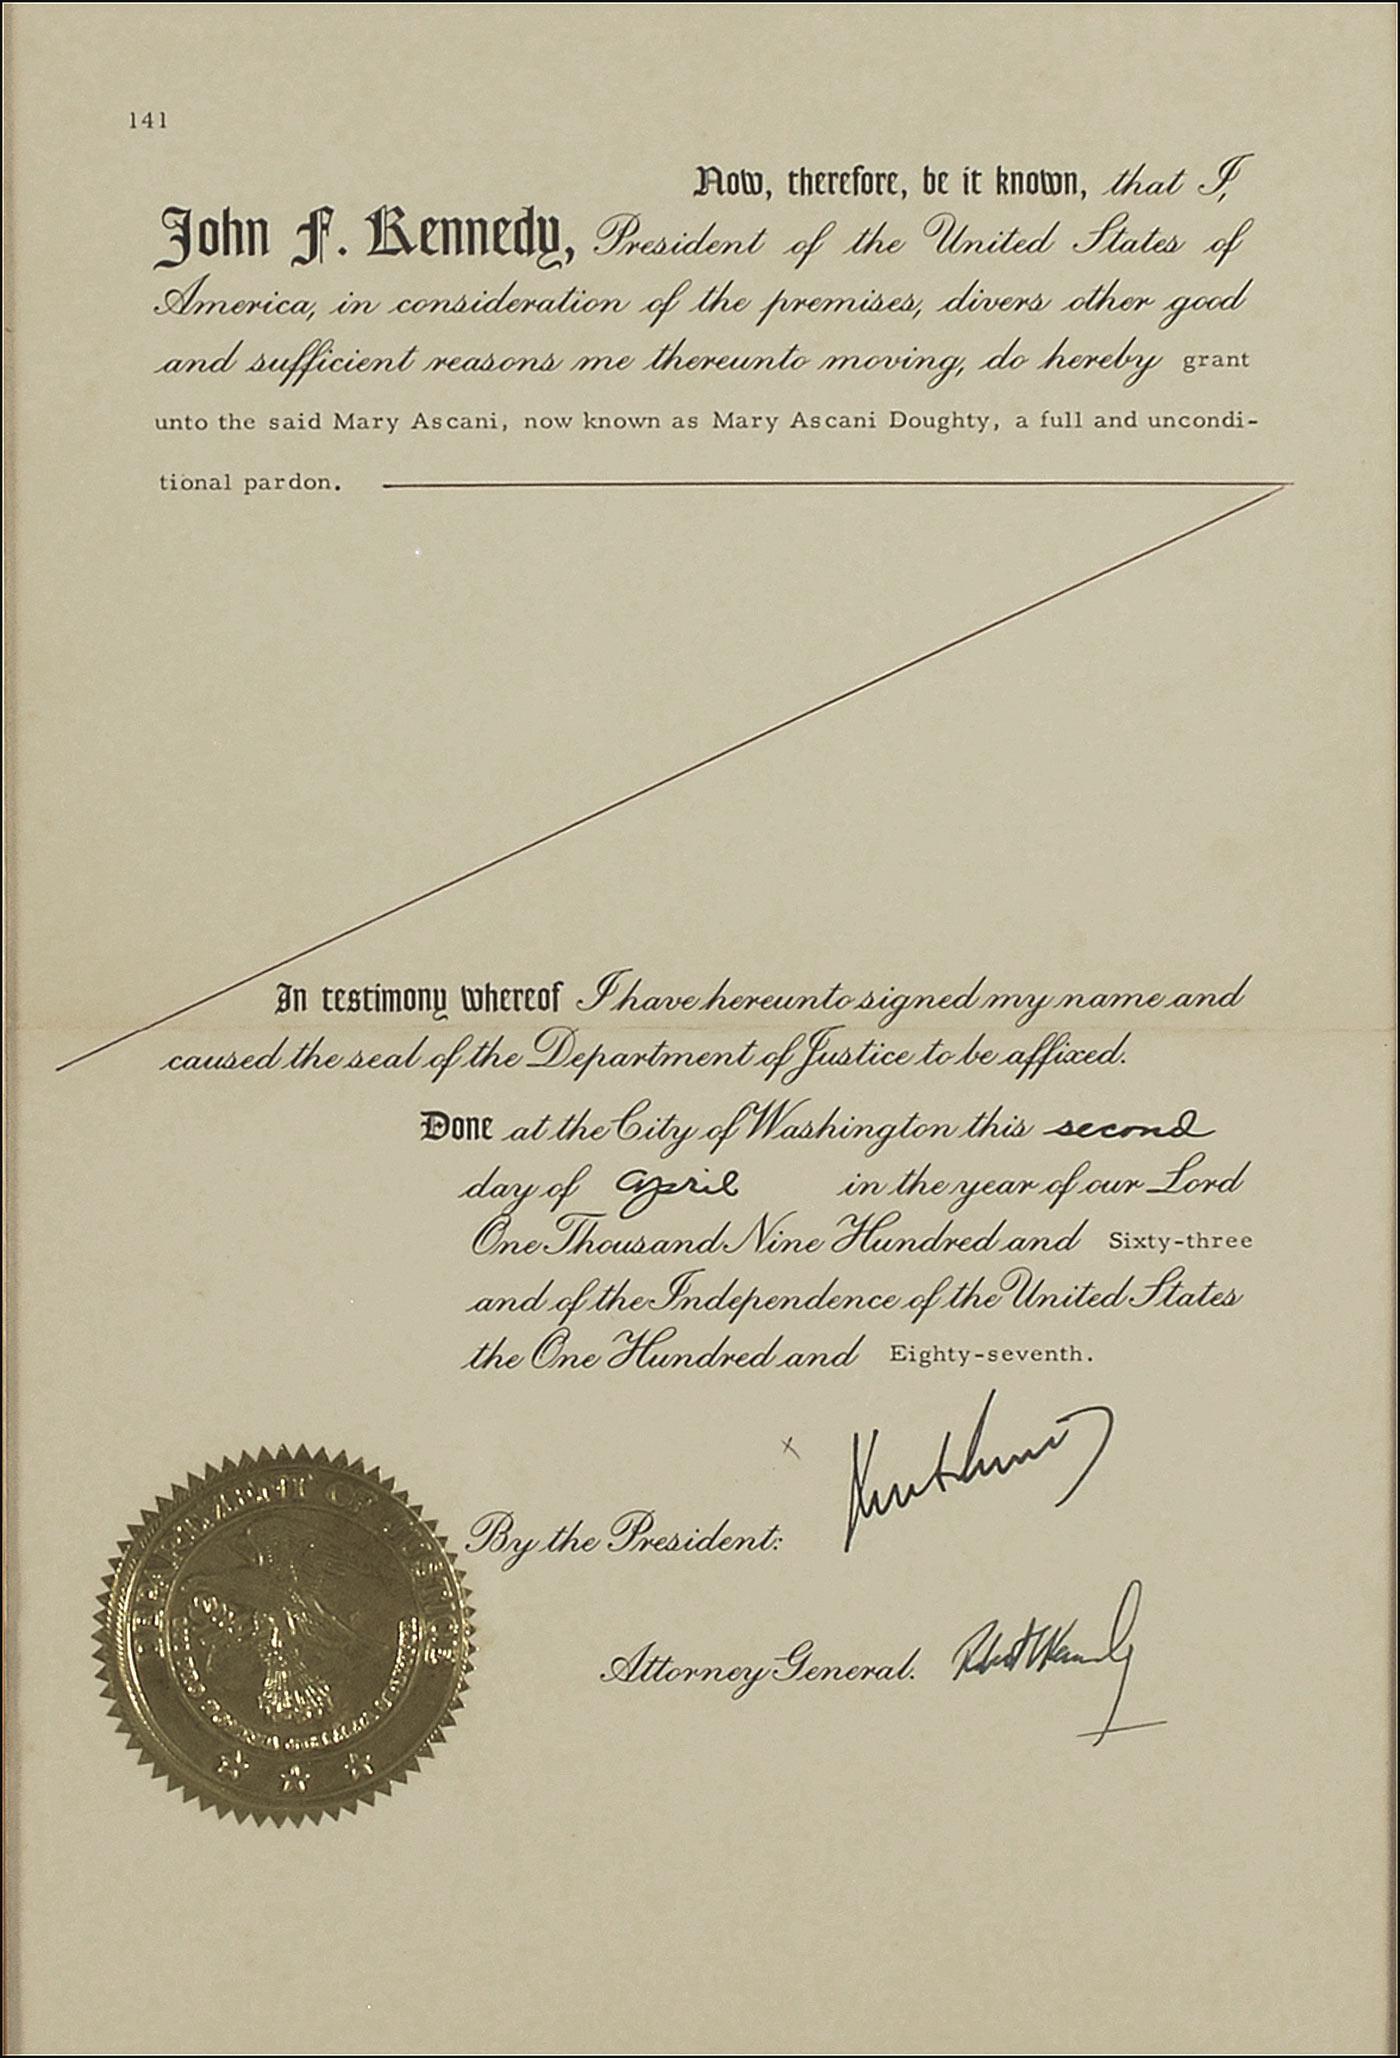 141
Now, therefore, be it known, that I,
John F. Kennedy, President of the United States of
America, in consideration of the premises, divers other good
and sufficient reasons me thereunto moving, do hereby grant
unto the said Mary Ascani, now known as Mary Ascani Doughty, a full and uncondi-
tional pardon.
In testimony whereof I have hereunto signed my name and
caused the seal of the Department of Justice to be affixed.
Done at the City of Washington this second
day of April in the year of our Lord
One Thousand Nine Hundred and Sixty-three
and of the Independence of the United States
the One Hundred and Eighty-seventh.
x
By the President:
Attorney General. Robert Kennedy
DEPARTMENT OF JUSTICE